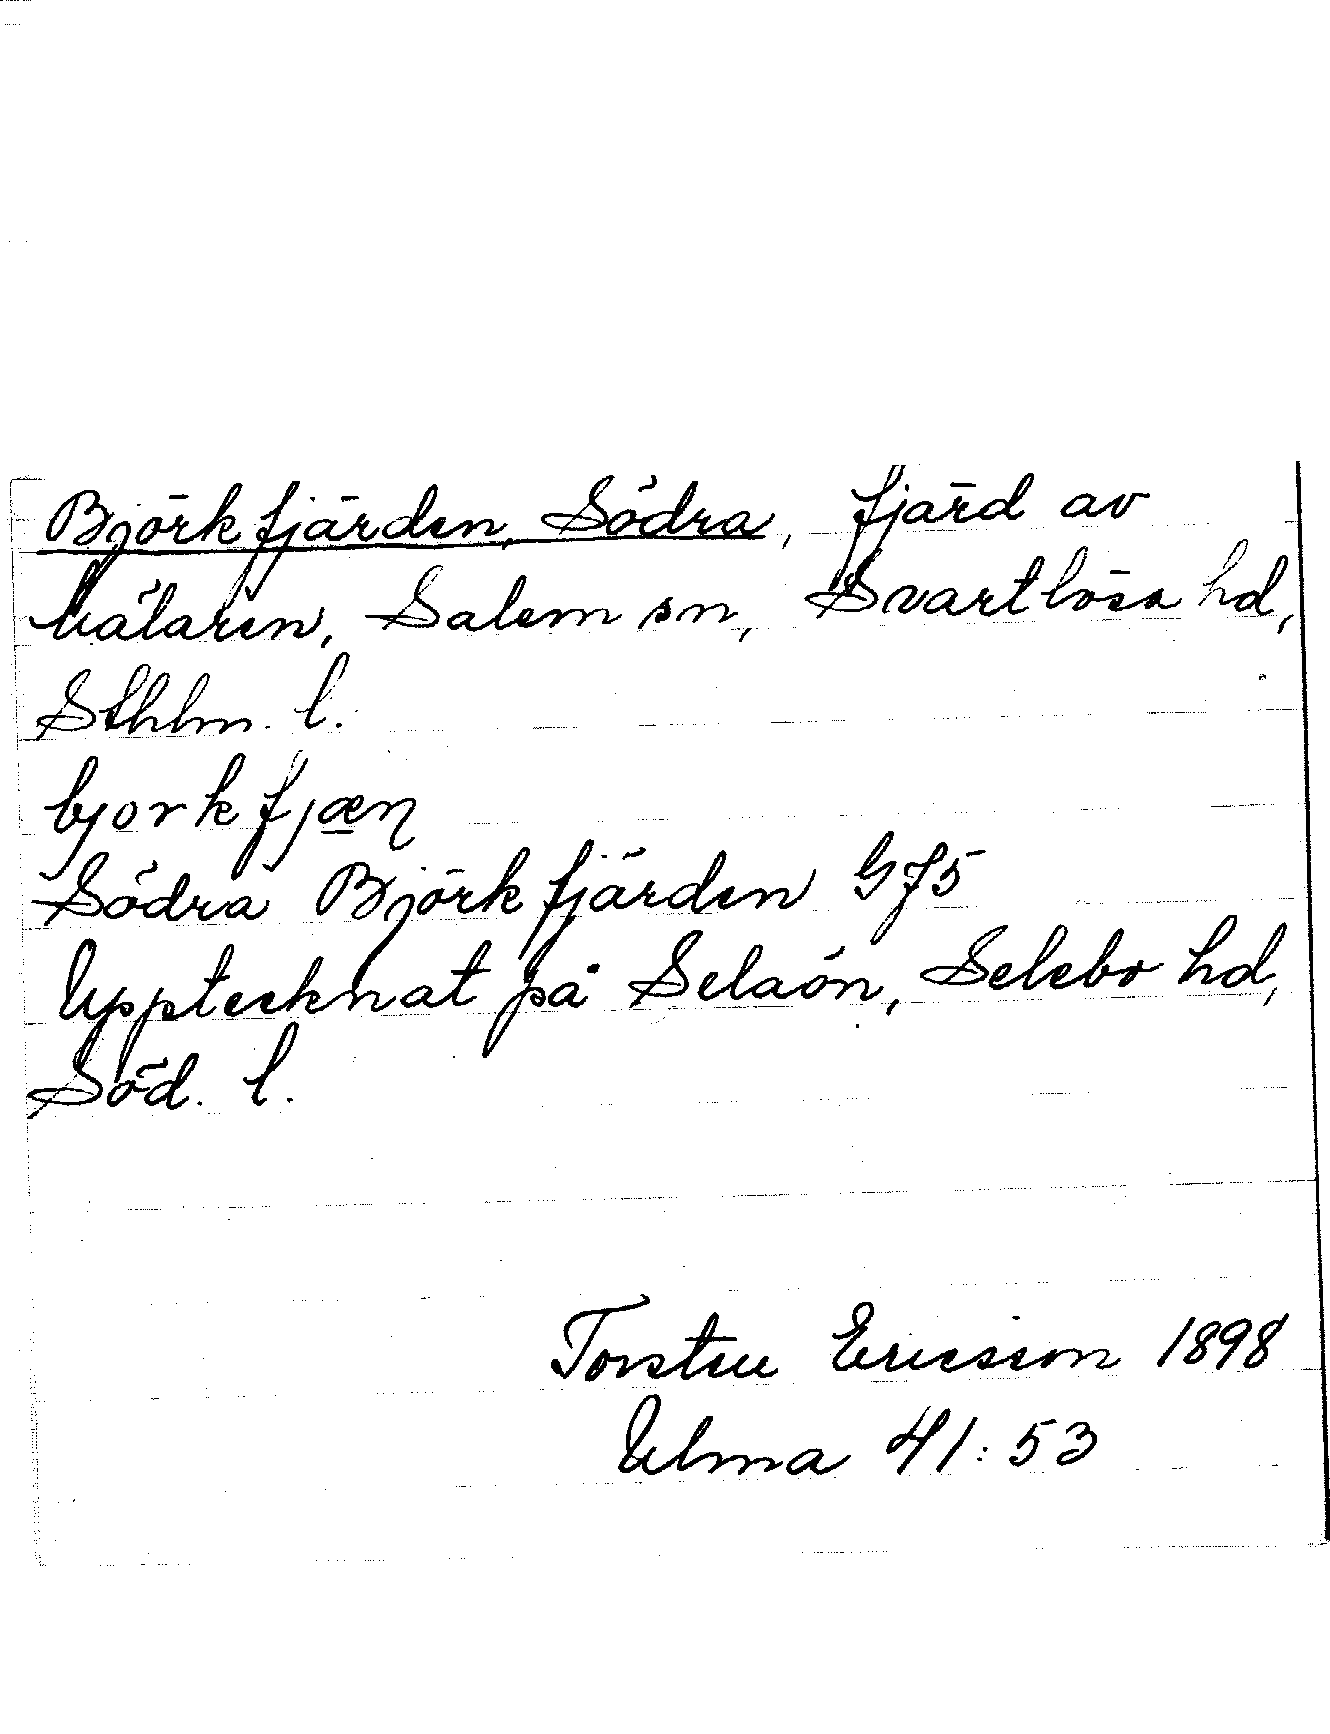 Björkfjärden, Södra, fjärd av
Mälaren, Salem sn, Svartlösa hd,
Sthlm. l.
bjorkfjæṇ
Södra Björkfjärden GJ5
Upptecknat på Selaön, Selebo hd,
Söd. l.
Torsten Ericsson 1898
Ulma 41:53